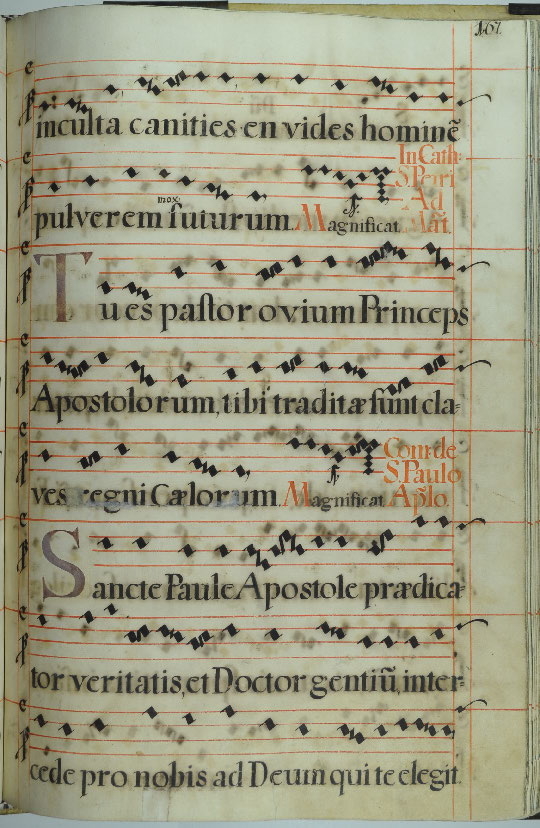 167
inculta canities en vides hominē
mox
pulverem futurum. Magnificat.
In Cath.
S. Petri
Ad
Mat.
Tu es pastor ovium Princeps
Apostolorum, tibi traditæ sunt cla-
ves regni Cælorum. Magnificat.
Com. de
S. Paulo
Aplo.
Sancte Paule Apostole prædica-
tor veritatis, et Doctor gentiū, inter-
cede pro nobis ad Deum qui te elegit.